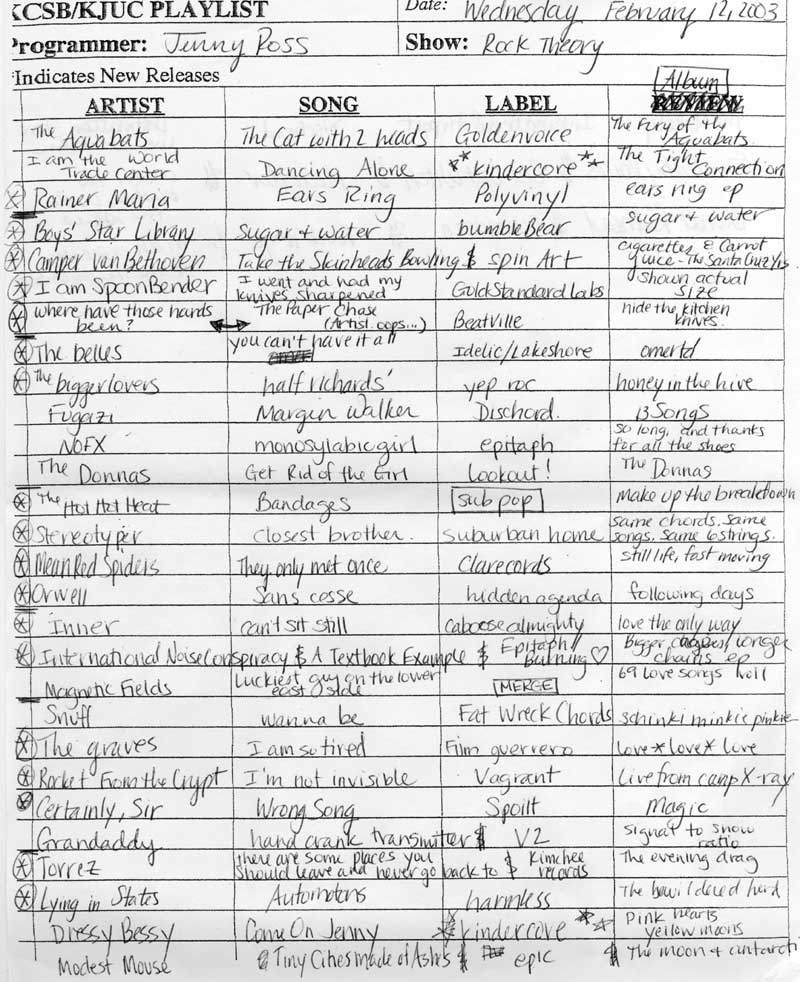 KCSB/KJUC PLAYLIST Date: Wednesday February 12, 2003
Programmer: Jenny Ross Show: Rock Theory
*Indicates New Releases
Album
ARTIST SONG LABEL REVIEW
The Aquabats The Cat with 2 heads Goldenvoice The Fury of the Aquabats
I am the World Trade Center Dancing Alone ** Kindercore ** The Tight Connection
* Rainer Maria Ears Ring Polyvinyl ears ring ep
* Boys' Star Library sugar + water bumbleBear sugar + water
* Camper van Bethoven Take the Skinheads Bowling spin Art cigarettes & Carrot Juice - The Santa Cruz Yrs
* I am SpoonBender I went and had my knives sharpened GoldStandard Labs shown actual size
* where have those hands been? The Paper Chase (Artist. oops...) Beatville hide the kitchen knives.
* The belles you can't have it all Idelic/Lakeshore omertd
* The biggerlovers half richards' yep roc honey in the hive
Fugazi Margin Walker Dischord. 13 Songs
NOFX monosylabic girl epitaph so long, and thanks for all the shoes
The Donnas Get Rid of the Girl Lookout! The Donnas
* The Hot Hot Heat Bandages sub pop make up the breakdown
* Stereotyper closest brother. suburban home same chords, same songs, same 6 strings.
* Mean Red Spiders They only met once Clarecords still life, fast moving
* Orwell Sans cesse hidden agenda following days
* Inner can't sit still caboose almighty love the only way
* International Noise Conspiracy A Textbook Example Epitaph/ Burning ♡ Bigger cages, longer chains ep
Magnetic Fields Luckiest guy on the lower east side MERGE 69 love songs
Snuff wanna be Fat Wreck Chords schinki minkie pinkie
* The graves I am so tired Film guerrero love * love * love
* Rocket From the Crypt I'm not invisible Vagrant Live from camp X-ray
* Certainly, Sir Wrong Song Spoilt Magic
Grandaddy hand crank transmitter V2 signal to snow ratio
* Torrez there are some places you should leave and never go back to Kimchee records The evening drag
* Lying in States Automotons harmless The bewildered herd
Dressy Bessy Come On Jenny * Kindercore ** Pink hearts yellow moons
Modest Mouse Tiny Cities made of Ashes epic The moon + antarcti